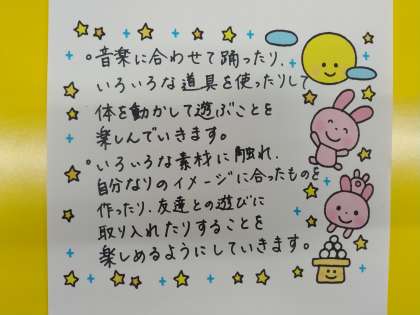 。音楽に合わせて踊ったり、
いろいろな道具を使ったりして
体を動かして遊ぶことを
楽しんでいきます。
。いろいろな素材に触れ、
自分なりのイメージに合ったものを
作ったり、友達との遊びに
取り入れたりすることを
楽しめるようにしていきます。